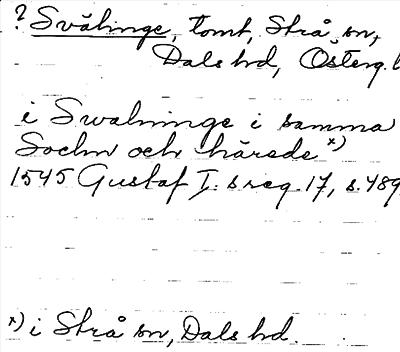 ? Svälinge, tomt, Strå sn,
Dals hd, Österg. l
i Swalninge i samma
Sochn och härade x)
1545 Gustaf I:s reg. 17, s. 489
x) i Strå sn, Dals hd.